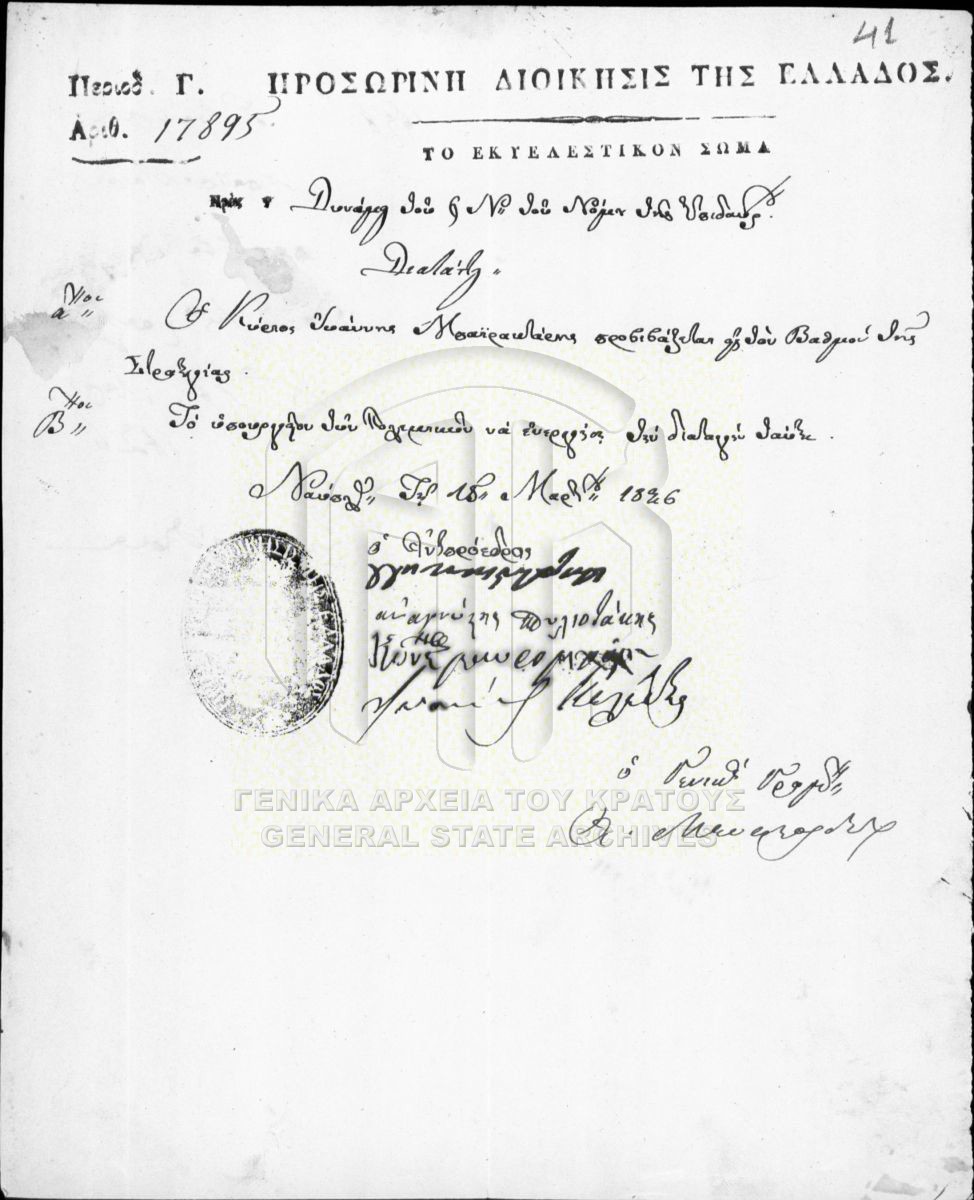 41
Περιοδ. Γ. ΠΡΟΣΩΡΙΝΗ ΔΙΟΙΚΗΣΙΣ ΤΗΣ ΕΛΛΑΔΟΣ.
Αριθ. 17895
ΤΟ ΕΚΤΕΛΕΣΤΙΚΟΝ ΣΩΜΑ
Πρὸς
Δυνάμει τοῦ Ν. τοῦ Νόμου τῆς Ἐπιδαύρ.
Διατάττει
α.
Ὁ Κύριος Ἰωάννης Μπαϊρακτάρης προβιβάζεται εἰς τὸν Βαθμὸν τῆς
Στρατηγίας.
Β.
Τὸ ὑπουργεῖον τῶν Πολεμικῶν νὰ ἐνεργήσῃ τὴν διαταγὴν ταύτην.
Ναύπλ. Τῇ 18 Μαρτ. 1826
ὁ Ἀντιπρόεδρος
ἀναγνώστης σπηλιοτάκης
Κωνς μαυρομιχάλης
Κωλέττης
ὁ Γενικ. Γραμ.
ΓΕΝΙΚΑ ΑΡΧΕΙΑ ΤΟΥ ΚΡΑΤΟΥΣ
GENERAL STATE ARCHIVES